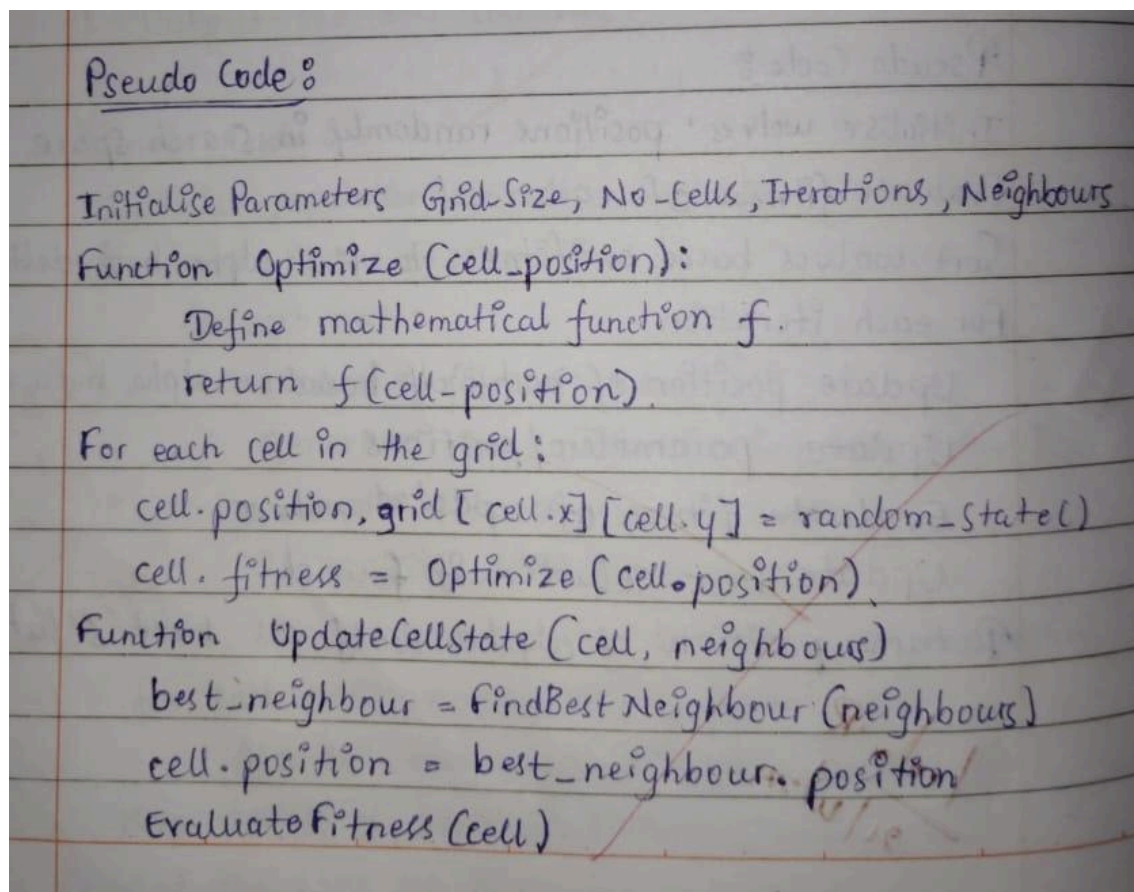 Pseudo Code:
Initialise Parameters Grid-Size, No-Cells, Iterations, Neighbours
Function Optimize (cell_position):
Define mathematical function f.
return f(cell-position).
For each cell in the grid:
cell.position, grid[cell.x][cell.y] = random_state()
cell.fitness = Optimize (cell.position).
Function UpdateCellState (cell, neighbours)
best_neighbour = findBestNeighbour (neighbours)
cell.position = best_neighbour.position
Evaluatefitness (cell)